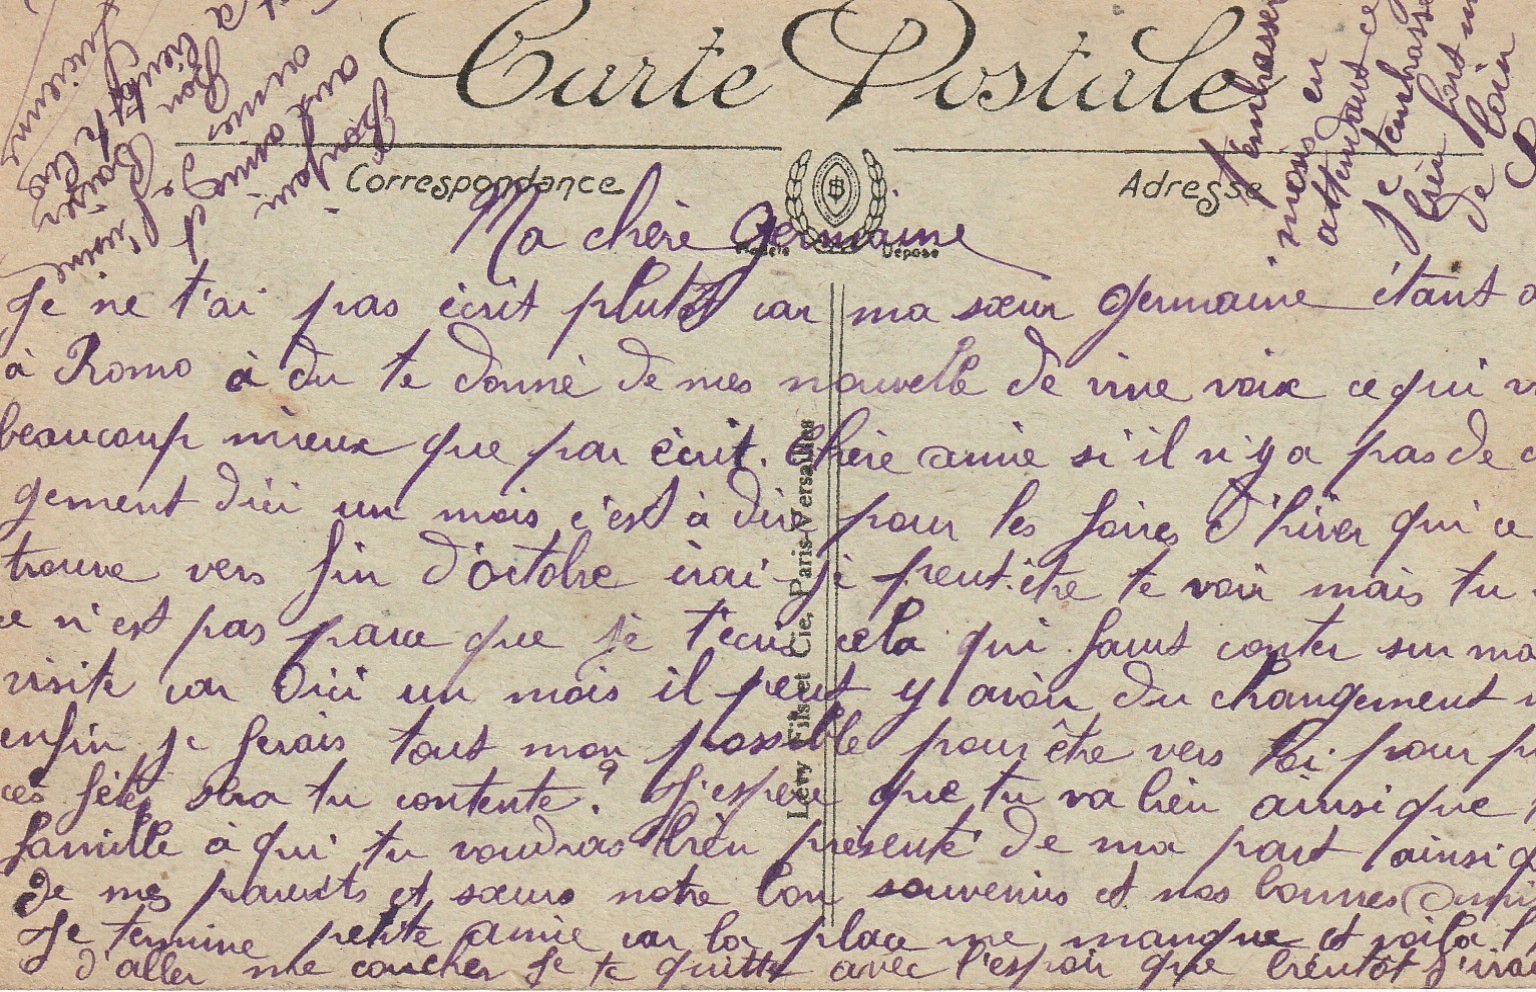 Carte Postale
Correspondance
Adresse
Modèle Déposé
Lévy Fils et Cie, Paris-Versailles
Ma chère Germaine
Je ne t'ai pas écrit plutôt car ma sœur Germaine étant
à Romo à du te donné de mes nouvelle de vive voix ce qui
beaucoup mieux que par écrit. Chère amie si il n'y a pas de
gement d'ici un mois c'est à dire pour les foires d'hiver qui ce
trouve vers fin d'octobre irai-je peut-être te voir mais tu
ce n'est pas parce que je t'ecris cela qui faut conter sur ma
visite car d'ici un mois il peut y avoir du changement
enfin je ferais tout mon possible pour être vers toi pour
ces fêtes sera tu contente? J'espère que tu va bien ainsi que
famille à qui tu voudras bien présenté de ma part ainsi
de mes parents et sœurs notre bon souvenirs et nos bonnes
Je termine petite amie car la place me manque et voilà
d'aller me coucher je te quitte avec l'espoir que bientôt j'irai
t'embrasser
mais en
attendant ce
je t'embrasse
bien fort
de loin
Bonjour
aux amis et
amies de
Bon Baiser
bientôt te lire